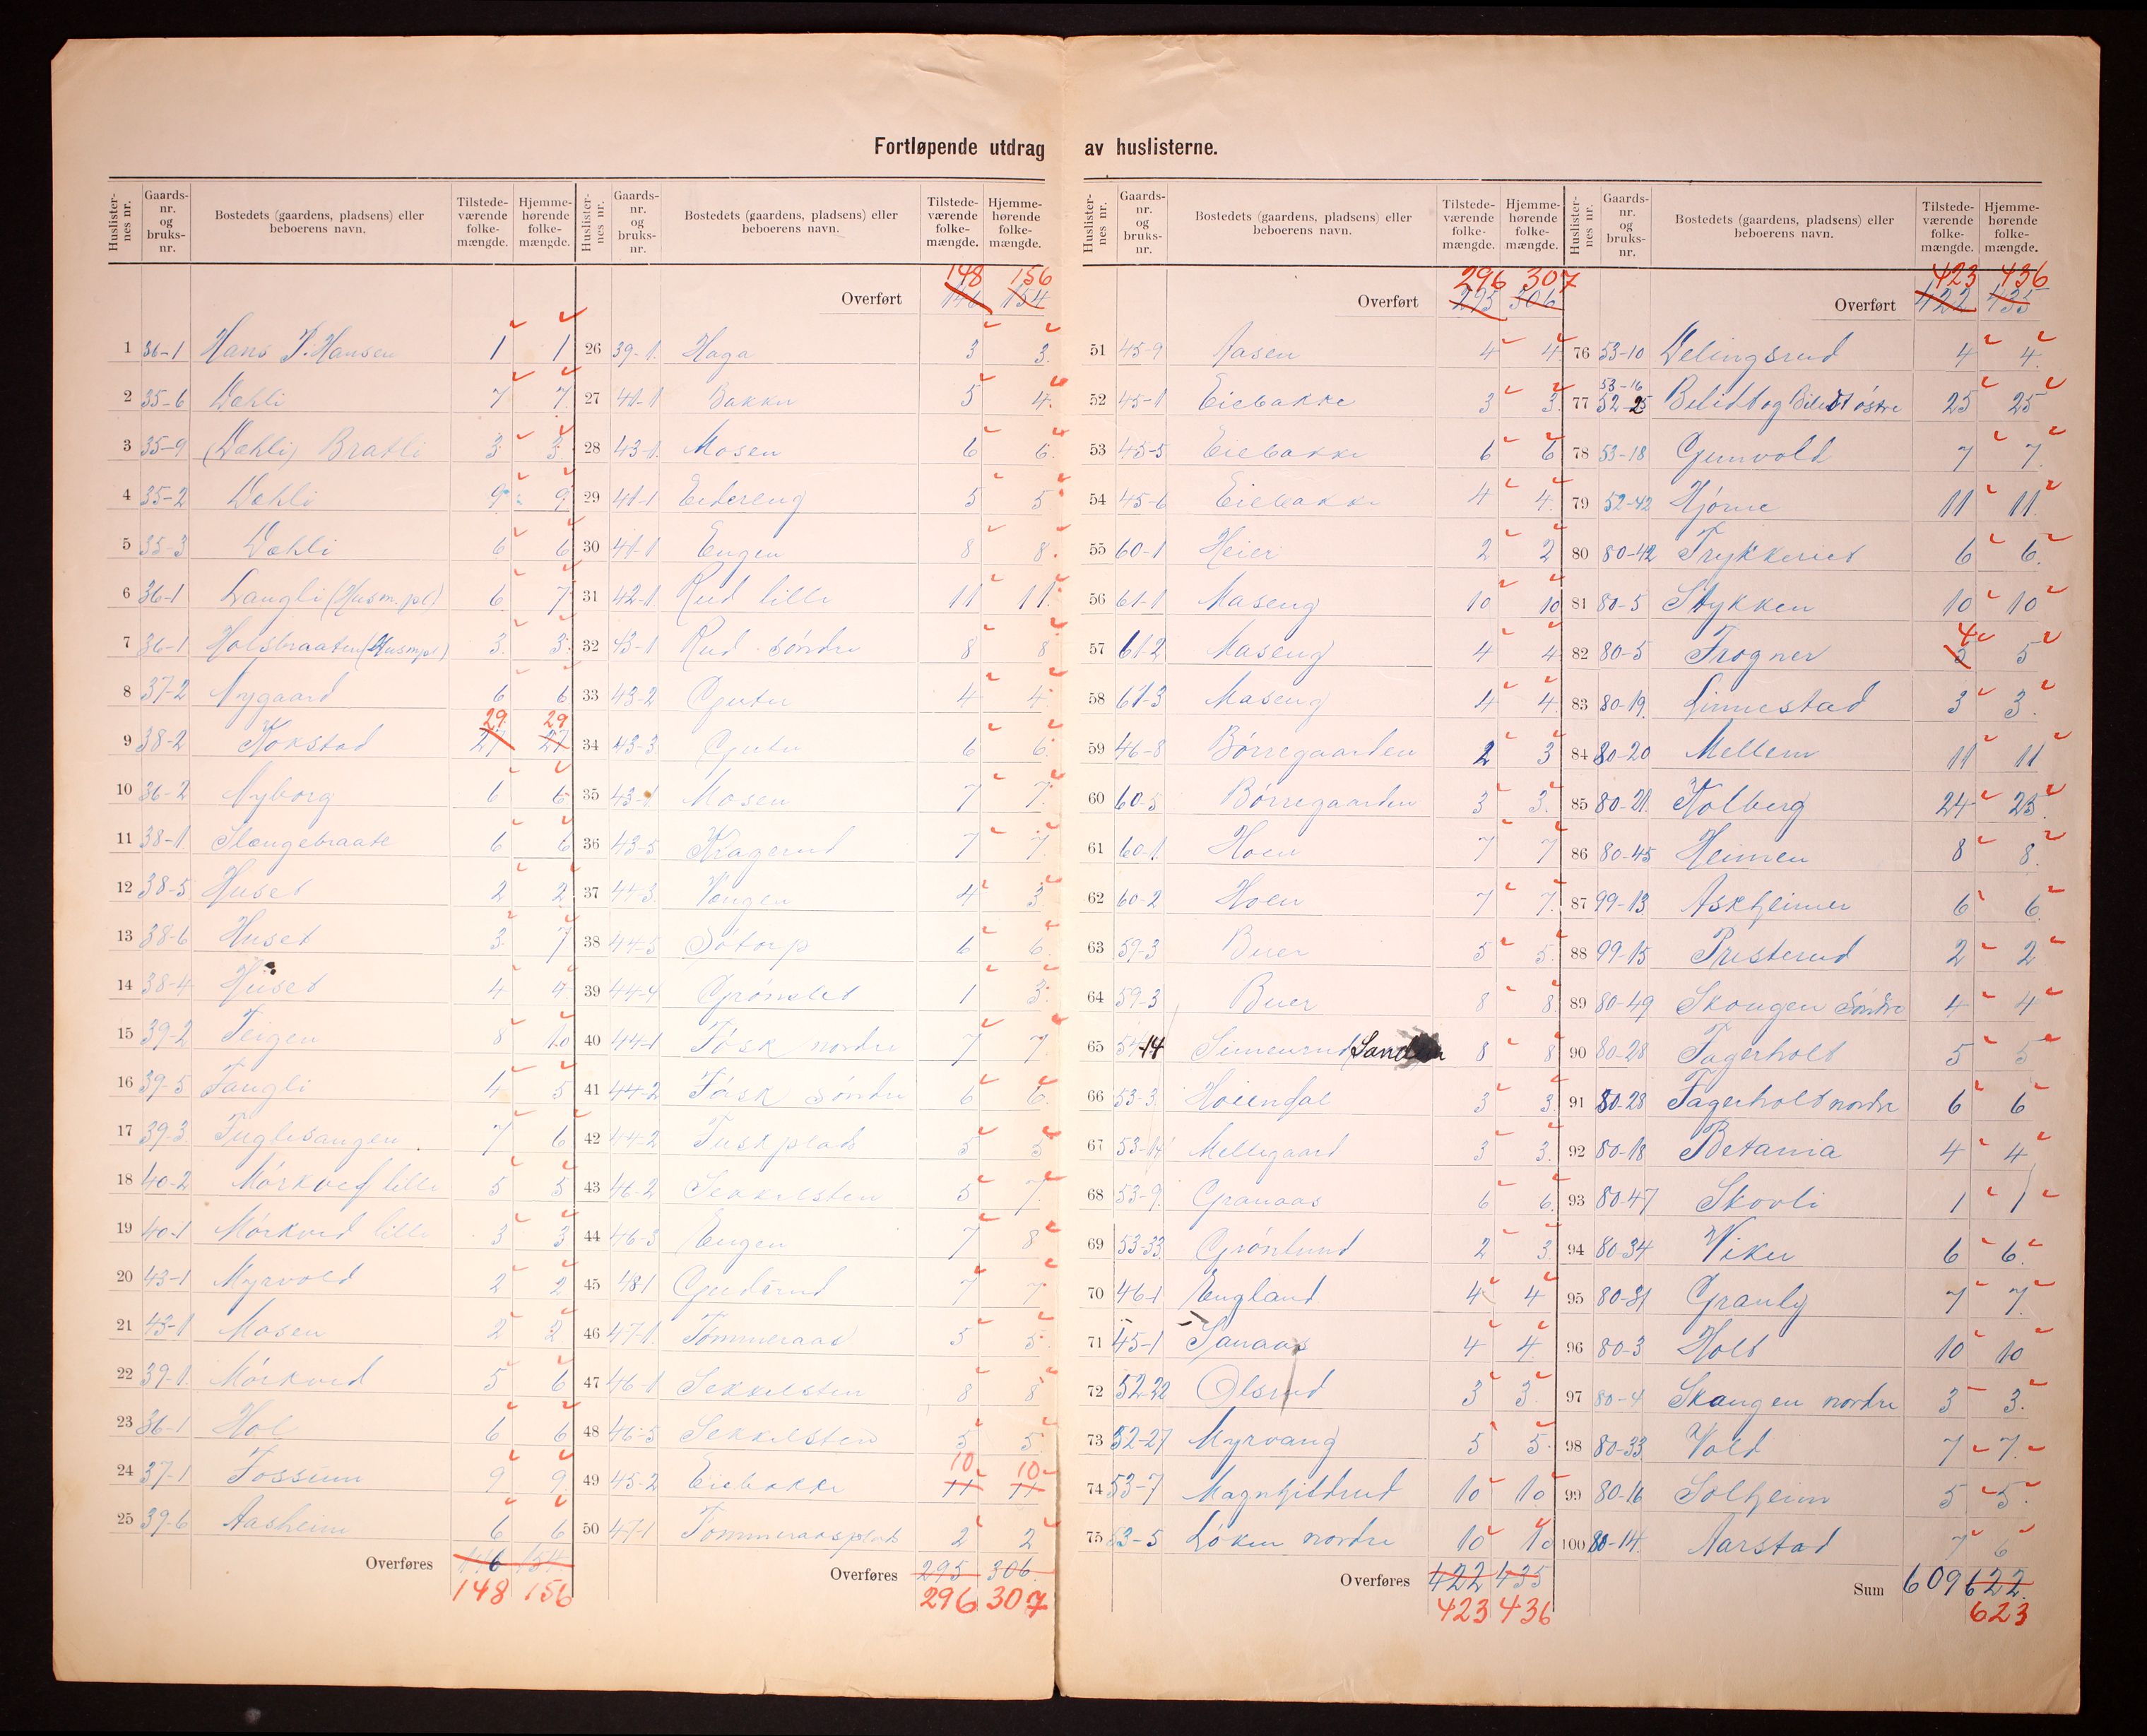 Fortløpende utdrag av huslisterne.
Huslisternes nr. Gaards-nr. og bruks-nr. Bostedets (gaardens, pladsens) eller beboerens navn. Tilstedeværende folkemængde. Hjemmehørende folkemængde.
1 36-1 Hans J. Hansen 1 1
2 35-6 Dæhli 7 7
3 35-9 (Dæhli) Bratli 3 3
4 35-2 Dæhli 9 9
5 35-3 Dæhli 6 6
6 36-1 Langli (Husm.pl) 6 7
7 36-1 Holsbraaten (Husmpl) 3 3
8 37-2 Nygaard 6 6
29 29
9 38-2 Kokstad 27 27
10 36-2 Nyborg 6 6
11 38-1 Slængebraate 6 6
12 38-5 Huset 2 2
13 38-6 Huset 3 7
14 38-4 Huset 4 4
15 39-2 Teigen 8 10
16 39-5 Faugli 4 5
17 39-3 Fuglesangen 7 6
18 40-2 Mörkved lille 5 5
19 40-1 Mörkved lille 3 3
20 43-1 Myrvold 2 2
21 43-1 Mosen 2 2
22 39-1 Mörkved 5 6
23 36-1 Hol 6 6
24 37-1 Fossum 9 9
25 39-6 Aasheim 6 6
Overføres 146 154
148 156
Huslisternes nr. Gaards-nr. og bruks-nr. Bostedets (gaardens, pladsens) eller beboerens navn. Tilstedeværende folkemængde. Hjemmehørende folkemængde.
148 156
Overført 146 154
26 39-1 Haga 3 3
27 41-1 Bakke 5 4
28 43-1 Mosen 6 6
29 41-1 Edereng 5 5
30 41-1 Engen 8 8
31 42-1 Rud lille 11 11
32 43-1 Rud söndre 8 8
33 43-2 Gutu 4 4
34 43-3 Gutu 6 6
35 43-1 Mosen 7 7
36 43-5 Kragerud 7 7
37 44-3 Vængen 4 3
38 44-5 Sötorp 6 6
39 44-4 Grönslet 1 3
40 44-1 Tösk nordre 7 7
41 44-2 Tösk söndre 6 6
42 44-2 Tuskplads 5 5
43 46-2 Sekkelsten 5 7
44 46-3 Engen 7 8
45 48-1 Gudsrud 7 7
46 47-1 Tömmeraas 5 5
47 46-1 Sekkelsten 8 8
48 46-5 Sekkelsten 5 5
10 10
49 45-2 Eiebakke 11 11
50 47-1 Tömmeraasplads 2 2
Overføres 295 306
296 307
Huslisternes nr. Gaards-nr. og bruks-nr. Bostedets (gaardens, pladsens) eller beboerens navn. Tilstedeværende folkemængde. Hjemmehørende folkemængde.
296 307
Overført 295 306
51 45-9 Aasen 4 4
52 45-1 Eiebakke 3 3
53 45-5 Eiebakke 6 6
54 45-6 Eiebakke 4 4
55 60-1 Heier 2 2
56 61-1 Maseng 10 10
57 61-2 Maseng 4 4
58 61-3 Maseng 4 4
59 46-8 Börregaarden 2 3
60 60-5 Börregaarden 3 3
61 60-1 Hoen 7 7
62 60-2 Hoen 7 7
63 59-3 Buer 5 5
64 59-3 Buer 8 8
65 54-14 Simensrud 8 8
66 53-3 Höiendal 3 3
67 53-14 Mellegaard 3 3
68 53-9 Granaas 6 6
69 53-33 Grönlund 2 3
70 46-1 England 4 4
71 45-1 Sanaas 4 4
72 52-22 Olsrud 3 3
73 52-27 Myrvang 5 5
74 53-7 Magnhildrud 10 10
75 53-5 Löken nordre 10 10
Overføres 422 435
423 436
Huslisternes nr. Gaards-nr. og bruks-nr. Bostedets (gaardens, pladsens) eller beboerens navn. Tilstedeværende folkemængde. Hjemmehørende folkemængde.
423 436
Overført 422 435
76 53-10 Delingsrud 4 4
53-16
77 52-25 Belidt og Belidt östre 25 25
78 53-18 Gunvold 7 7
79 52-42 Hjörne 11 11
80 80-42 Trykkeriet 6 6
81 80-5 Stykken 10 10
4
82 80-5 Frogner 5 5
83 80-19 Linnestad 3 3
84 80-20 Mellem 11 11
85 80-21 Kolberg 24 25
86 80-45 Heimen 8 8
87 99-13 Askheimer 6 6
88 99-15 Presterud 2 2
89 80-49 Skougen Söndre 4 4
90 80-28 Fagerholt 5 5
91 80-28 Fagerholt nordre 6 6
92 80-18 Betania 4 4
93 80-47 Skovli 1 1
94 80-34 Viken 6 6
95 80-31 Granly 7 7
96 80-3 Holt 10 10
97 80-4 Skaugen nordre 3 3
98 80-33 Vold 7 7
99 80-16 Solheim 5 5
100 80-14 Aarstad 7 6
Sum 609 622
623